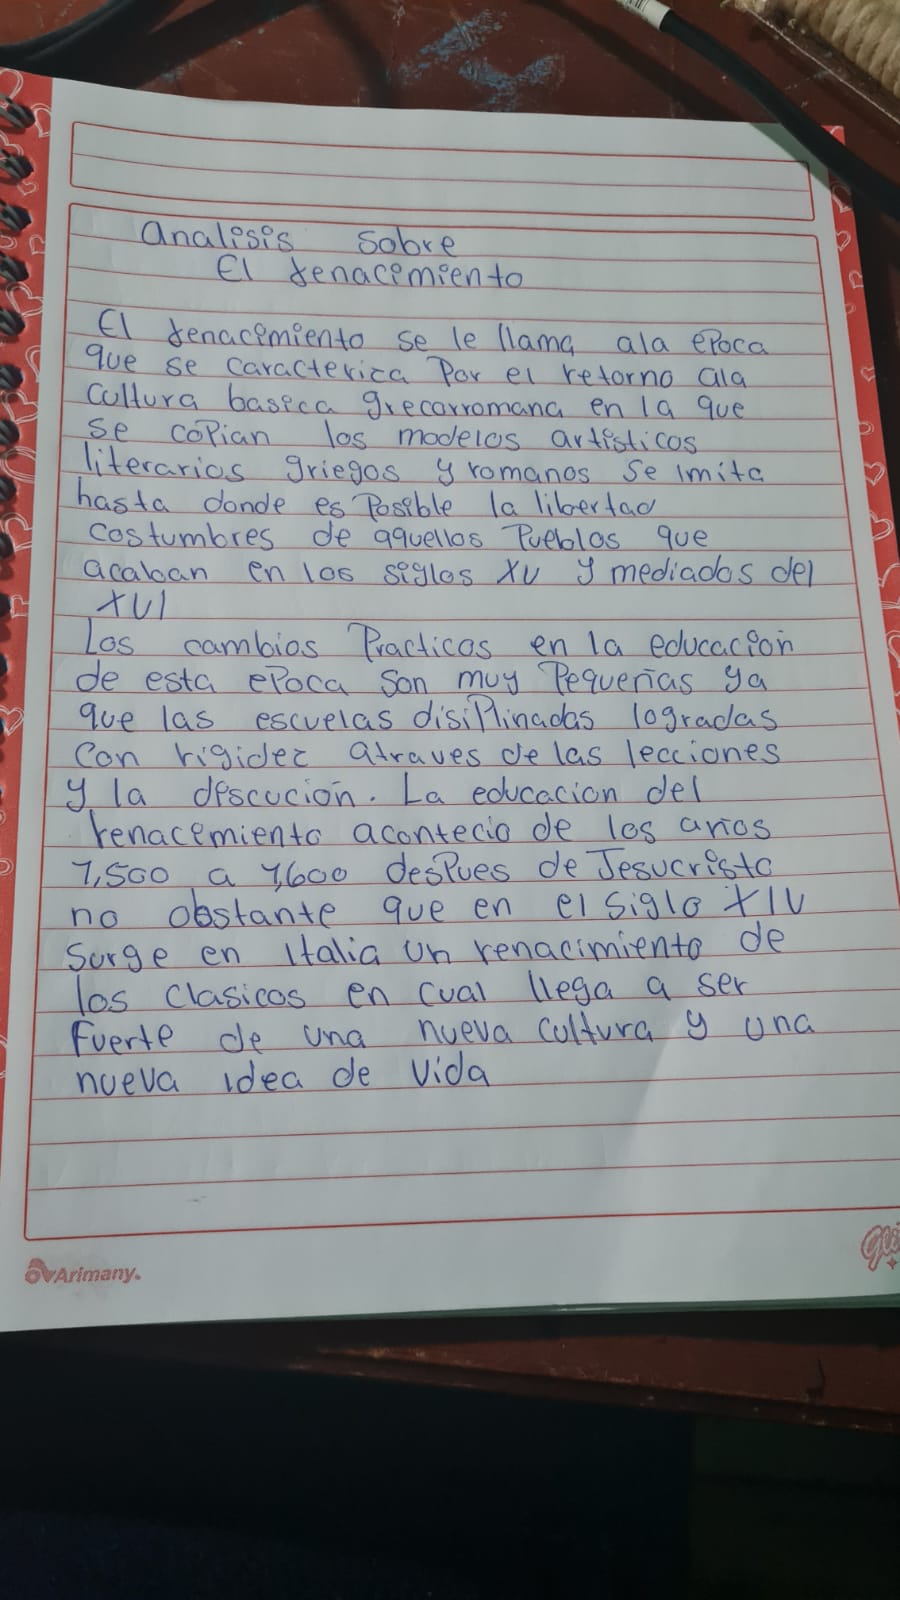 Analisis sobre
El renacimiento
El renacimiento se le llama ala epoca
que se caracterica Por el retorno ala
cultura baseca grecorromana en la que
se copian los modelos artisticos
literarios griegos y romanos se imita
hasta donde es Posible la libertad
costumbres de aquellos Pueblos que
acaban en los siglos XV y mediados del
XVI
Los cambios Practicos en la educación
de esta epoca son muy Pequeñas ya
que las escuelas disiPlinadas logradas
Con rigidez atraves de las lecciones
y la descución. La educacion del
renacemiento acontecio de los años
1,500 a 1,600 desPues de Jesucristo
no obstante que en el siglo XIV
Surge en Italia un renacimiento de
los clasicos en cual llega a ser
Fuerte de una nueva cultura y una
nueva idea de vida
Arimany.